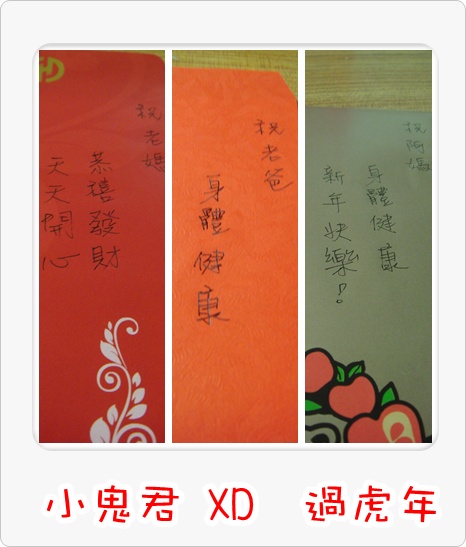 祝老媽
恭禧發財
天天開心
祝老爸
身體健康
祝阿媽
身體健康
新年快樂!
小鬼君 XD 過虎年